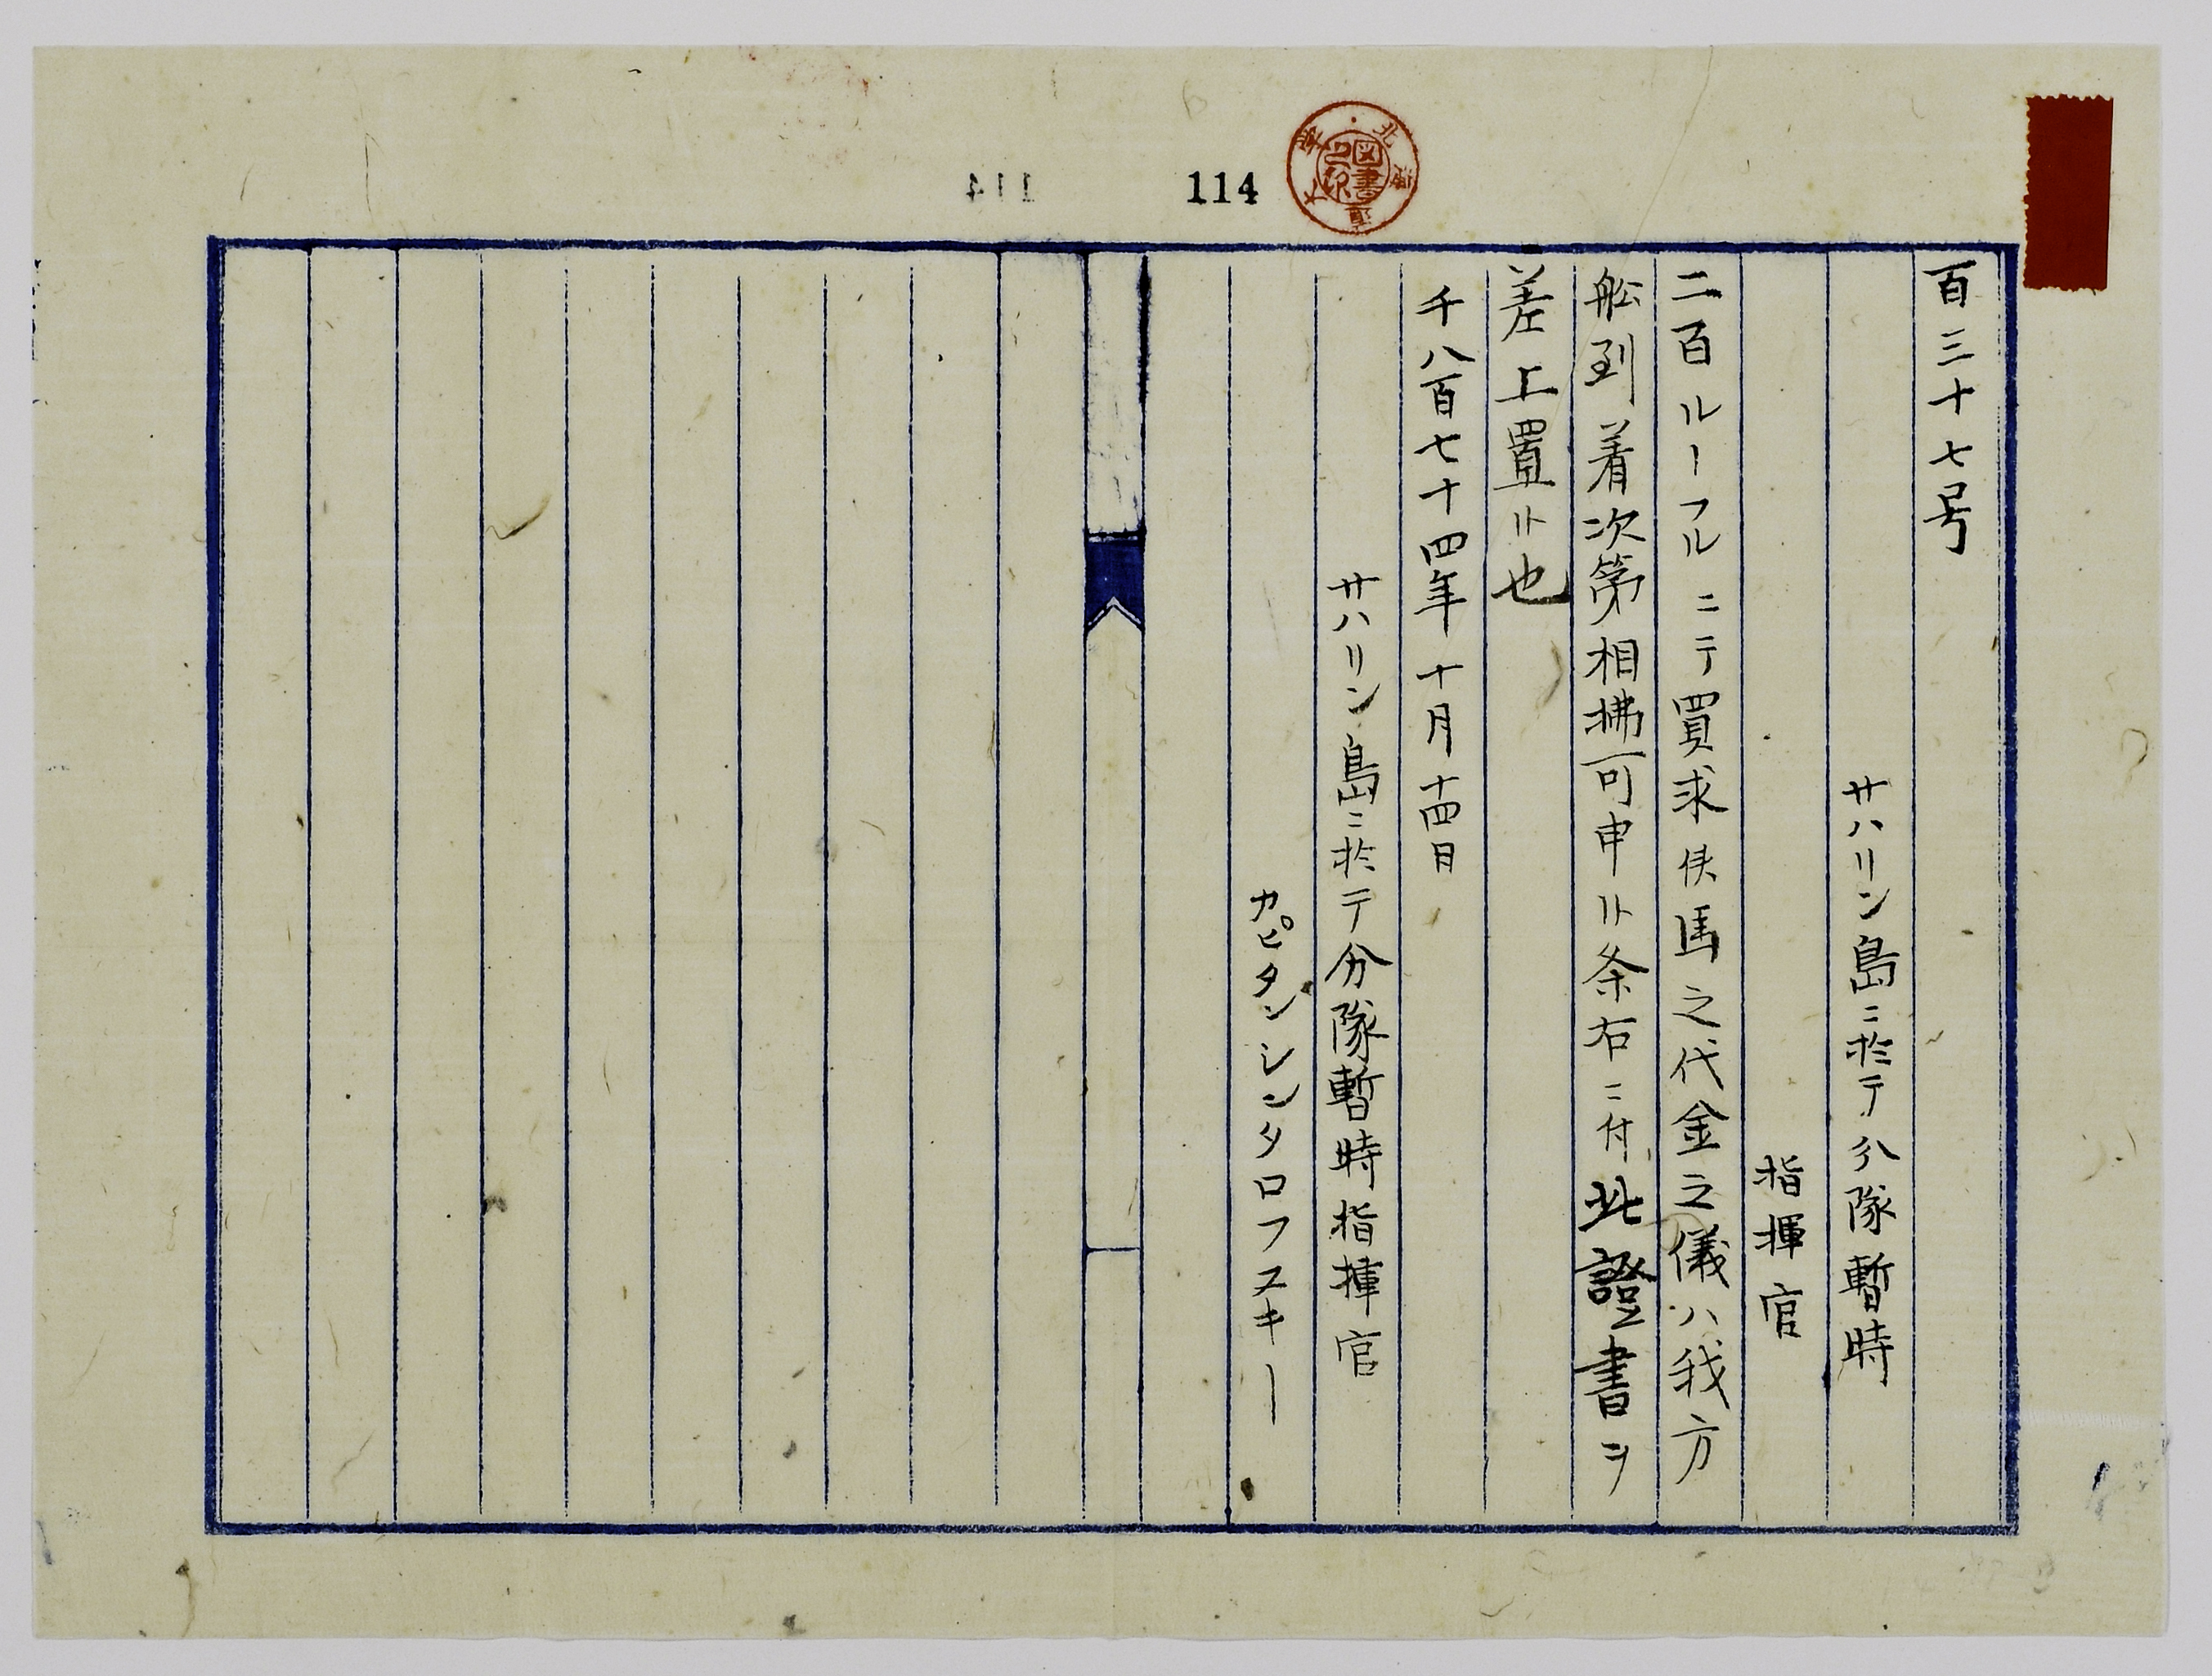 114
北海道大學
図書之印
百三十七号
サハリン島ニ於テ分隊暫時
指揮官
二百ルーフルニテ買求候馬之代金之儀ハ我方
舩到着次第相拂可申候条右ニ付此證書ヲ
差上置候也
千八百七十四年十月十四日
サハリン島ニ於テ分隊暫時指揮官
カピタンシンタロフスキー